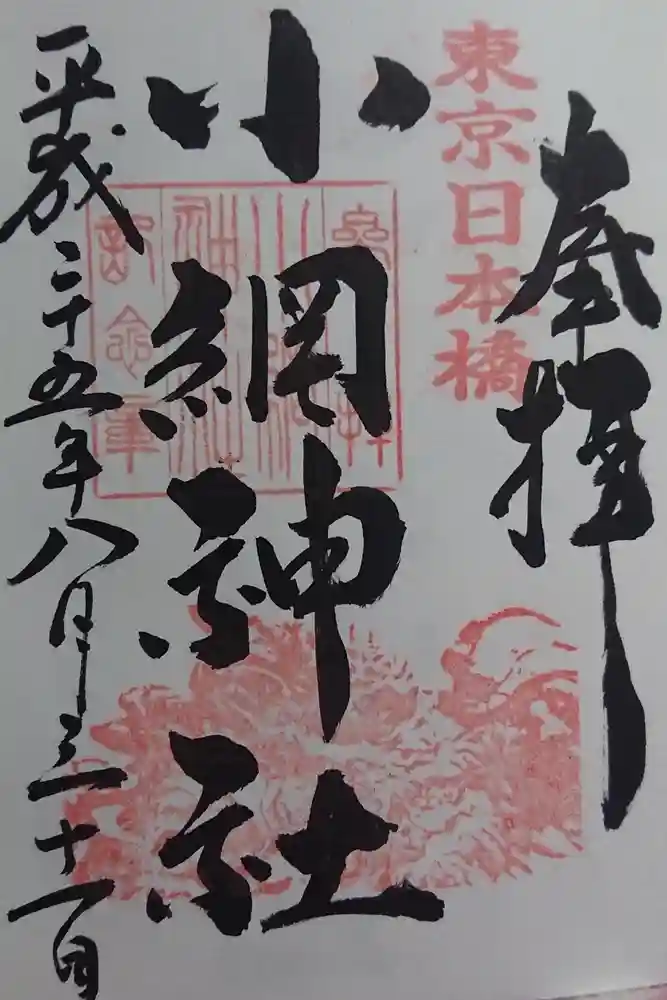 奉拝
東京日本橋
小網神社
平成二十五年八月三十一日